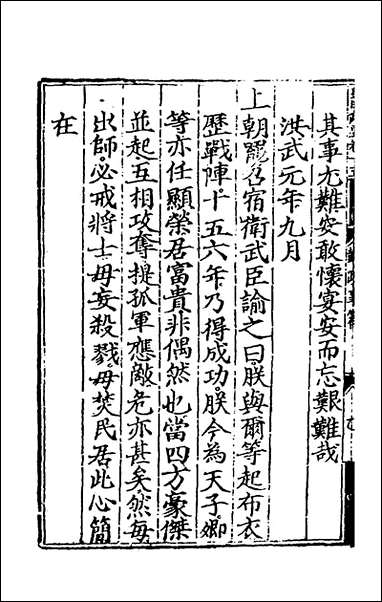 其事尤難安敢懷宴安而忘艱難哉
洪武元年九月
上朝罷召宿衛武臣諭之曰朕與爾等起布衣
歷戰陣十五六年乃得成功朕今為天子卿
等亦任顯榮居富貴非偶然也當四方豪傑
並起互相攻奪提孤軍應敵危亦甚矣然每
出師必戒將士毋妄殺戮毋焚民居此心簡
在